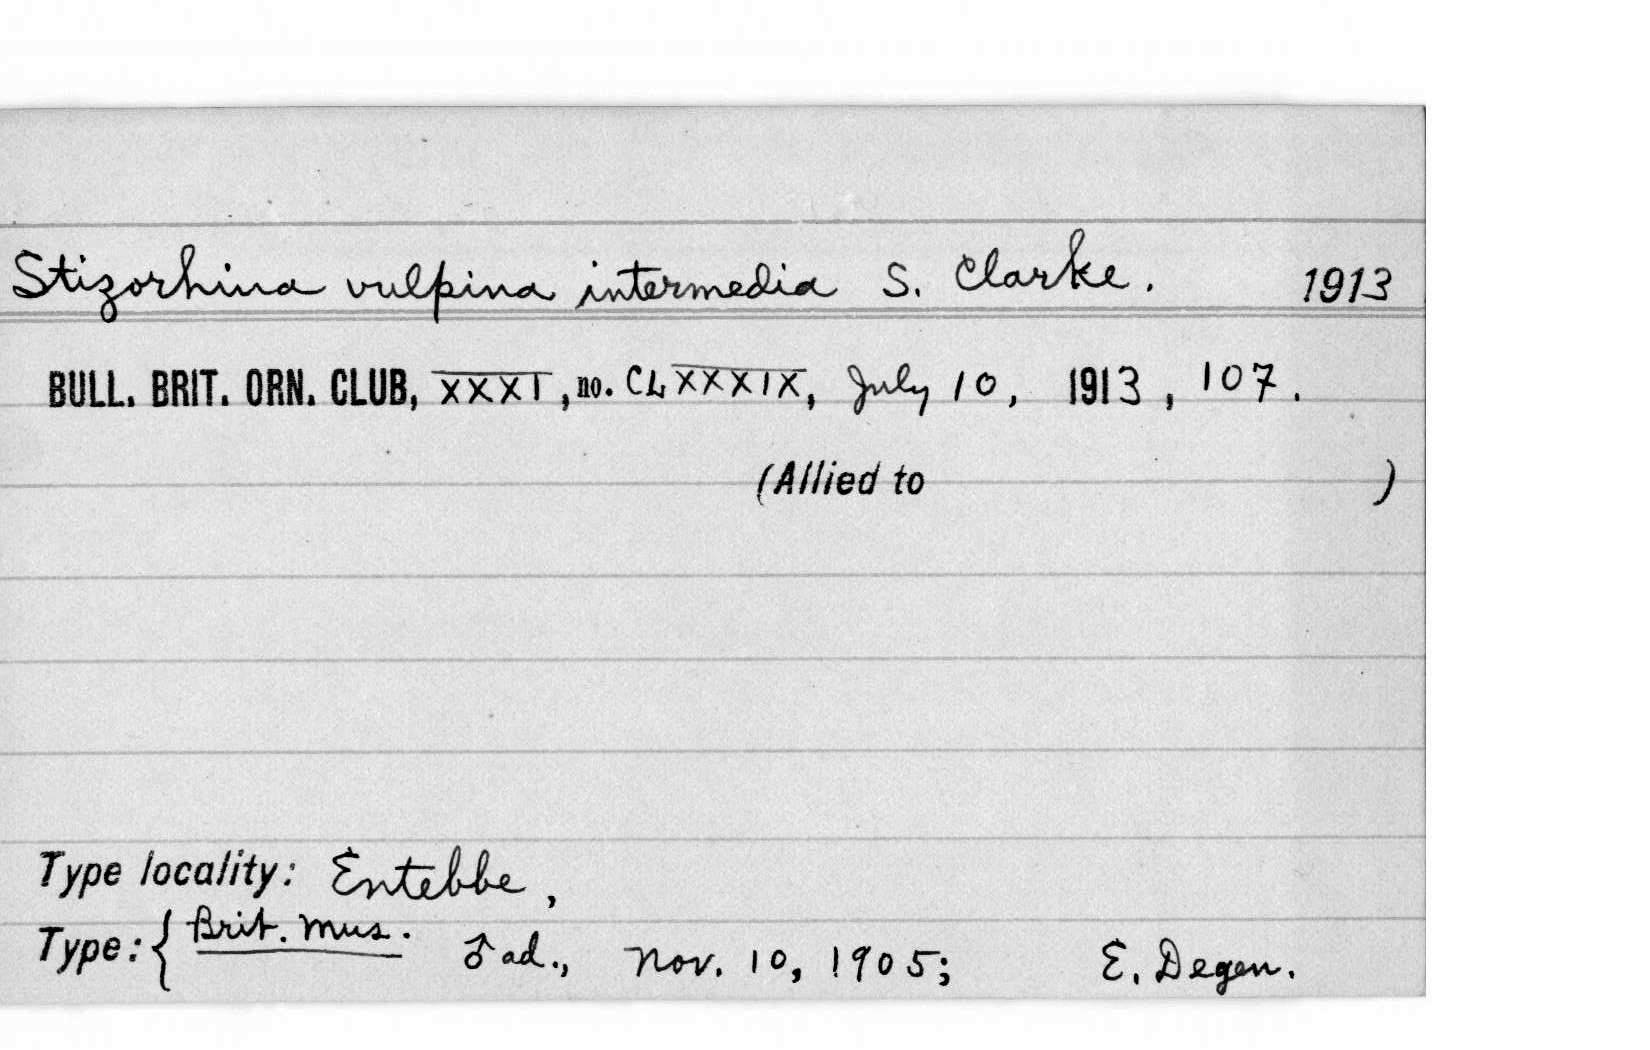 Stizorhina vulpina intermedia S. Clarke. 1913
BULL. BRIT. ORN. CLUB, XXXI, no. CLXXXIX, July 10, 1913, 107.
(Allied to )
Type locality: Entebbe,
Type: { Brit. Mus. ♂ ad., Nov. 10, 1905; E. Degen.